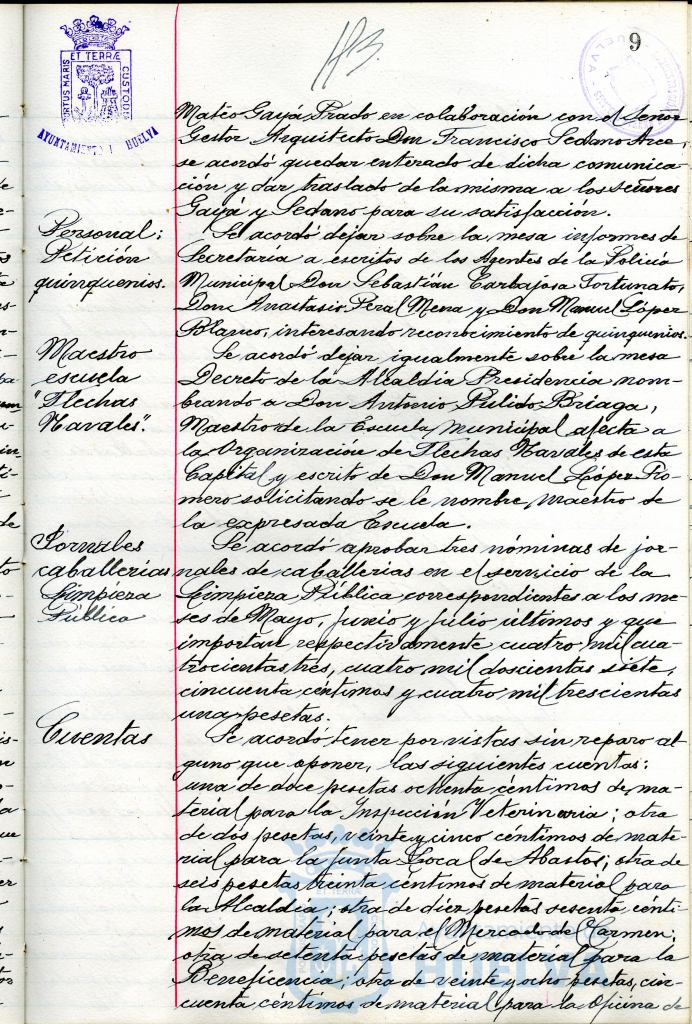 9
113.
ET TERRÆ
PORTUS MARIS
CUSTODIA
AYUNTAMIENTO HUELVA
HUELVA
Mateo Gayá Prado en colaboración con el Señor
Gestor Arquitecto Don Francisco Sedano Arce,
se acordó quedar enterado de dicha comunica-
ción y dar traslado de la misma a los señores
Gayá y Sedano para su satisfacción.
Personal:
Petición
quinquenios.
Se acordó dejar sobre la mesa informes de
Secretaria a escritos de los Agentes de la Policia
Municipal Don Sebastián Carbajosa Fortunato,
Don Anastasio Peral Mena y Don Manuel López
Blanco, interesando reconocimiento de quinquenios.
Maestro
escuela
"Flechas
Navales".
Se acordó dejar igualmente sobre la mesa
Decreto de la Alcaldía Presidencia nom-
brando a Don Antonio Pulido Briaga,
Maestro de la Escuela municipal afecta a
la Organización de Flechas Navales de esta
Capital y escrito de Don Manuel López Ro-
mero solicitando se le nombre maestro de
la expresada Escuela.
Jornales
caballerias
Limpieza
Pública
Se acordó aprobar tres nóminas de jor-
nales de caballerias en el servicio de la
Limpieza Pública correspondientes a los me-
ses de Mayo, Junio y Julio últimos y que
importan respectivamente cuatro mil cua-
trocientas tres, cuatro mil doscientas siete,
cincuenta céntimos y cuatro mil trescientas
una pesetas.
Cuentas
Se acordó tener por vistas sin reparo al-
guno que oponer, las siguientes cuentas:
una de doce pesetas ochenta céntimos de ma-
terial para la Inspección Veterinaria; otra
de dos pesetas, veinte y cinco céntimos de mate-
rial para la Junta Local de Abastos; otra de
seis pesetas treinta céntimos de material para
la Alcaldía; otra de diez pesetas sesenta cénti-
mos de material para el Mercado de Carmen;
otra de setenta pesetas de material para la
Beneficencia; otra de veinte y ocho pesetas, cin-
cuenta céntimos de material para la Oficina de
HUELVA